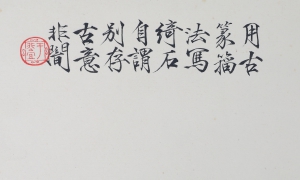 用古
篆籀
法寫
綺石
自謂
別存
古意
非閒